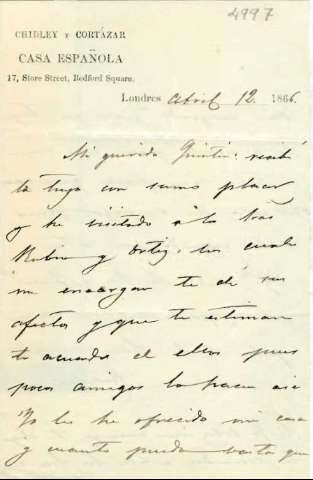 4997
CHIDLEY Y CORTÁZAR
CASA ESPAÑOLA
17, Store Street, Bedford Square.
Londres Abril 12 1866.
Mi querido Quintin: recibí
la tuya con sumo placer
y he visitado a los Sres
Rubio y Ortiz, los cuales
me encargan te dé sus
afectos y que te estiman
te acuerdes de ellos pues
pocos amigos lo hacen asi
Yo les he ofrecido mi casa
y cuanto pueda hasta que